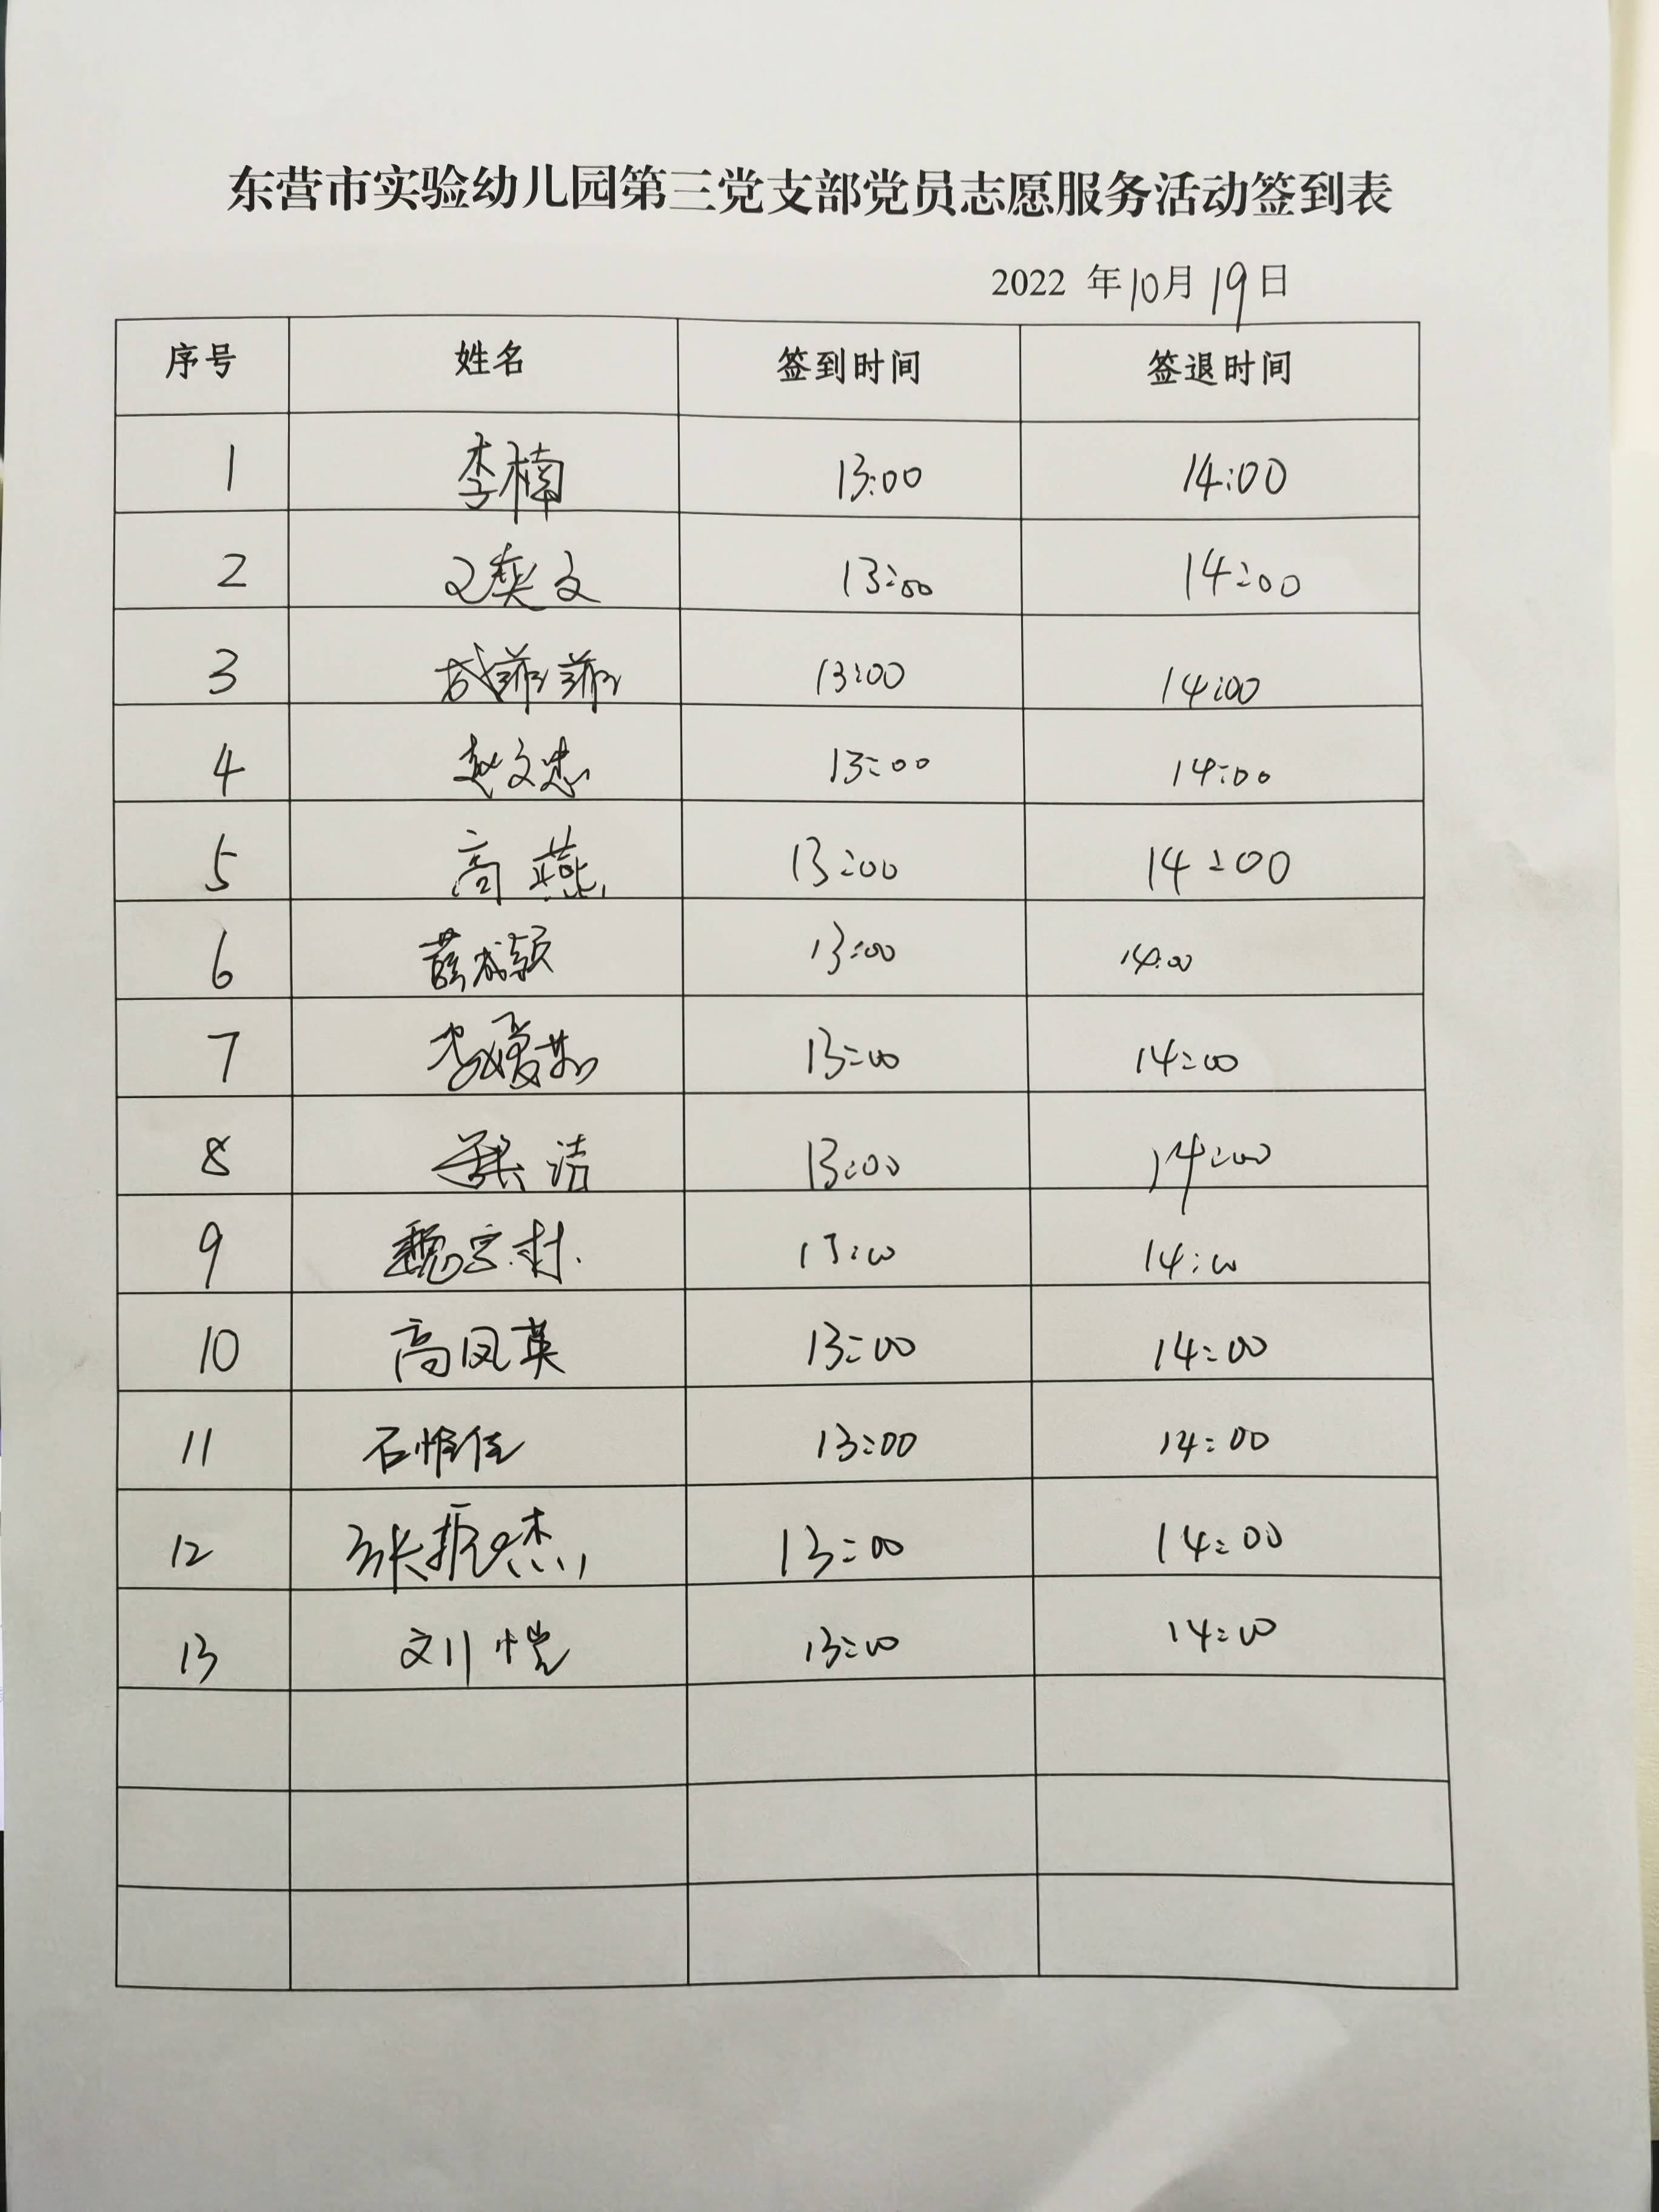 东营市实验幼儿园第三党支部党员志愿服务活动签到表
2022 年10月19日
序号 姓名 签到时间 签退时间
1 李楠 13:00 14:00
2 13:00 14:00
3 13:00 14:00
4 赵文忠 13:00 14:00
5 高燕 13:00 14:00
6 薛成颖 13:00 14:00
7 13:00 14:00
8 梁洁 13:00 14:00
9 13:00 14:00
10 高凤英 13:00 14:00
11 石惟佳 13:00 14:00
12 张振杰 13:00 14:00
13 刘恺 13:00 14:00